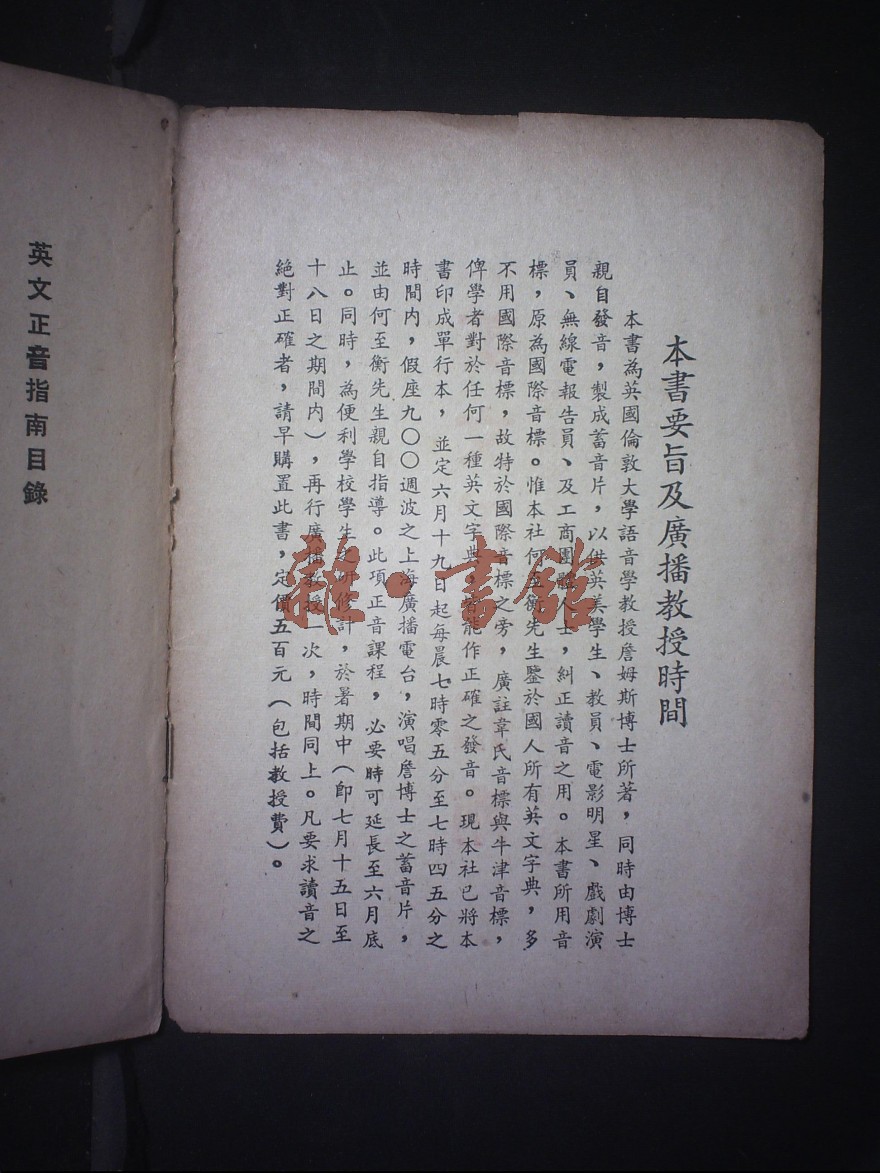 本書要旨及廣播教授時間
本書為英國倫敦大學語音學教授詹姆斯博士所著，同時由博士
親自發音，製成蓄音片，以供英美學生、教員、電影明星、戲劇演
員、無線電報告員、及工商團體人士，糾正讀音之用。本書所用音
標，原為國際音標。惟本社何至衡先生鑒於國人所有英文字典，多
不用國際音標，故特於國際音標之旁，廣註韋氏音標與牛津音標，
俾學者對於任何一種英文字典，皆能作正確之發音。現本社已將本
書印成單行本，並定六月十九日起每晨七時零五分至七時四五分之
時間內，假座九〇〇週波之上海廣播電台，演唱詹博士之蓄音片，
並由何至衡先生親自指導。此項正音課程，必要時可延長至六月底
止。同時，為便利學校學生之研修計，於暑期中（即七月十五日至
十八日之期間內），再行廣播教授一次，時間同上。凡要求讀音之
絕對正確者，請早購置此書，定價五百元（包括教授費）。
英文正音指南目錄
雜·書館